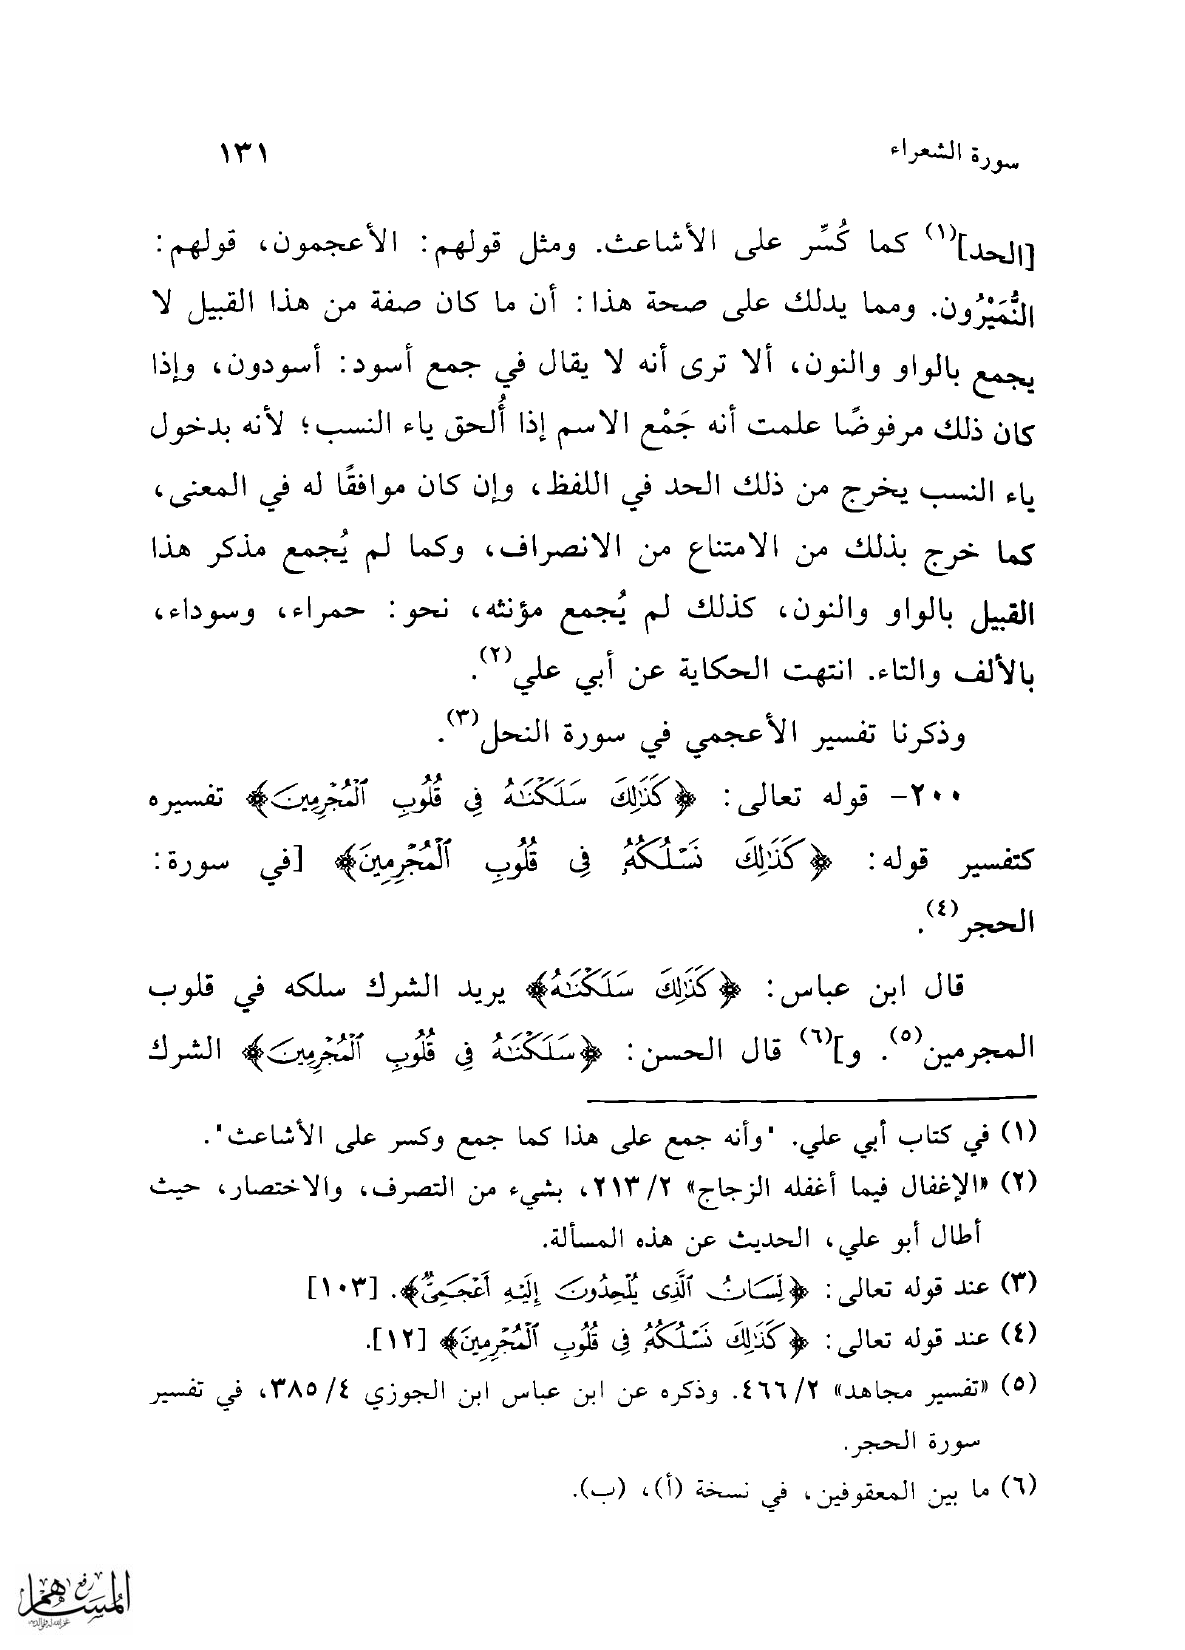 سورة الشعراء ١٣١
[الحد](١) كما كُسِّر على الأشاعث. ومثل قولهم: الأعجمون، قولهم:
النُّمَيْرُون. ومما يدلك على صحة هذا: أن ما كان صفة من هذا القبيل لا
يجمع بالواو والنون، ألا ترى أنه لا يقال في جمع أسود: أسودون، وإذا
كان ذلك مرفوضًا علمت أنه جَمْع الاسم إذا أُلحق ياء النسب؛ لأنه بدخول
ياء النسب يخرج من ذلك الحد في اللفظ، وإن كان موافقًا له في المعنى،
كما خرج بذلك من الامتناع من الانصراف، وكما لم يُجمع مذكر هذا
القبيل بالواو والنون، كذلك لم يُجمع مؤنثه، نحو: حمراء، وسوداء،
بالألف والتاء. انتهت الحكاية عن أبي علي(٢).
وذكرنا تفسير الأعجمي في سورة النحل(٣).
٢٠٠- قوله تعالى: ﴿كَذَٰلِكَ سَلَكْنَٰهُ فِى قُلُوبِ ٱلْمُجْرِمِينَ﴾ تفسيره
كتفسير قوله: ﴿كَذَٰلِكَ نَسْلُكُهُۥ فِى قُلُوبِ ٱلْمُجْرِمِينَ﴾ [في سورة:
الحجر(٤).
قال ابن عباس: ﴿كَذَٰلِكَ سَلَكْنَٰهُ﴾ يريد الشرك سلكه في قلوب
المجرمين(٥). و](٦) قال الحسن: ﴿سَلَكْنَٰهُ فِى قُلُوبِ ٱلْمُجْرِمِينَ﴾ الشرك
(١) في كتاب أبي علي. "وأنه جمع على هذا كما جمع وكسر على الأشاعث".
(٢) «الإغفال فيما أغفله الزجاج» ٢/ ٢١٣، بشيء من التصرف، والاختصار، حيث
أطال أبو علي، الحديث عن هذه المسألة.
(٣) عند قوله تعالى: ﴿لِّسَانُ ٱلَّذِى يُلْحِدُونَ إِلَيْهِ أَعْجَمِىٌّ﴾. [١٠٣]
(٤) عند قوله تعالى: ﴿كَذَٰلِكَ نَسْلُكُهُۥ فِى قُلُوبِ ٱلْمُجْرِمِينَ﴾ [١٢].
(٥) «تفسير مجاهد» ٢/ ٤٦٦. وذكره عن ابن عباس ابن الجوزي ٤/ ٣٨٥، في تفسير
سورة الحجر.
(٦) ما بين المعقوفين، في نسخة (أ)، (ب).
رفع
المساهم